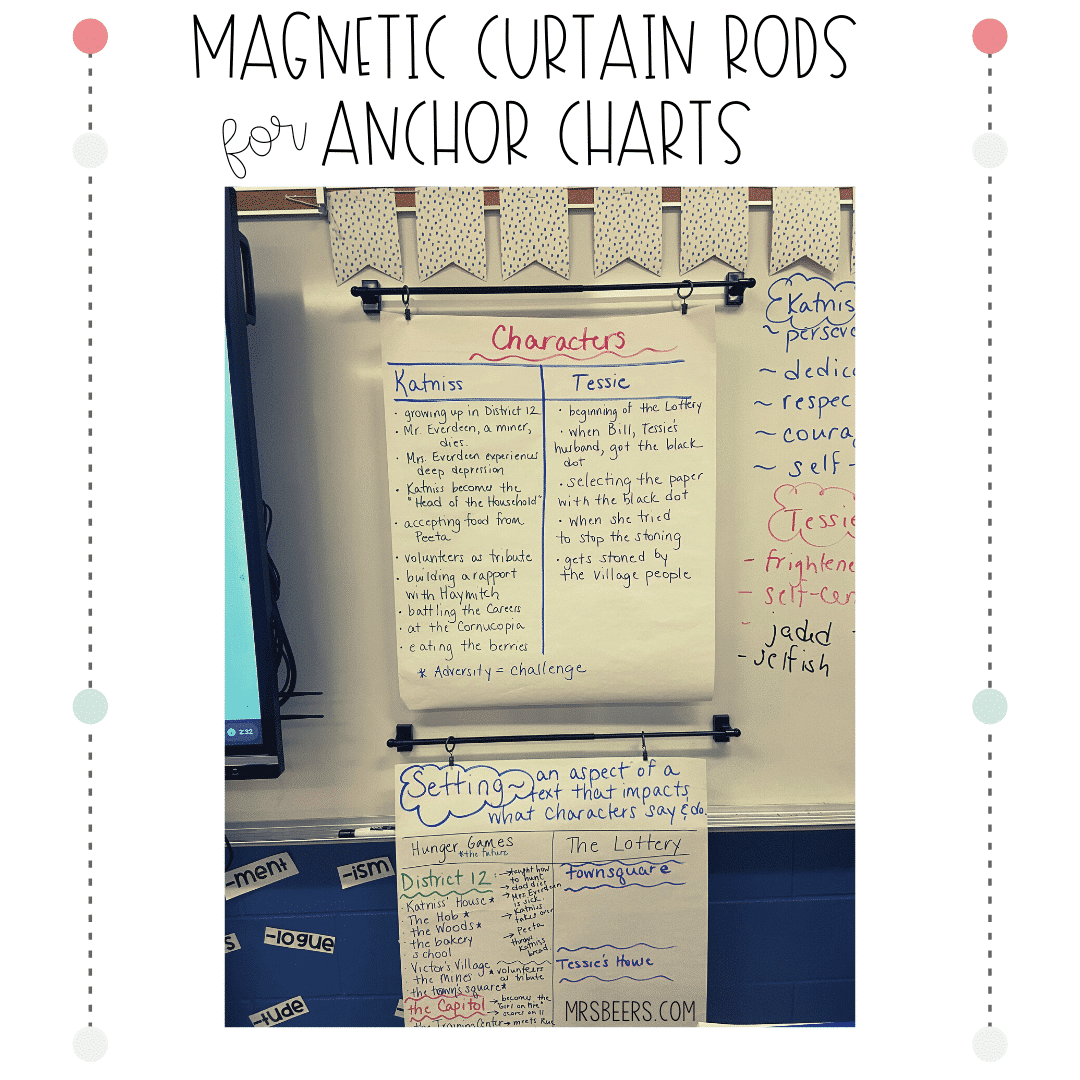 MAGNETIC CURTAIN RODS
for ANCHOR CHARTS
Characters
Katniss
· growing up in District 12
· Mr. Everdeen, a miner,
dies.
· Mrs. Everdeen experiences
deep depression
· Katniss becomes the
"Head of the Household"
· accepting food from
Peeta
· volunteers as tribute
· building a rapport
with Haymitch
· battling the Careers
· at the Cornucopia
· eating the berries
* Adversity = challenge
Tessie
· beginning of the Lottery
· when Bill, Tessie's
husband, got the black
dot
· selecting the paper
with the black dot
· when she tried
to stop the stoning
· gets stoned by
the village people
Katnis
~ persev
~ dedic
~ respec
~ coura
~ self-
Tessie
- frightene
- self-cen
- jaded
- selfish
2:32
Setting ~ an aspect of a
text that impacts
what characters say & do.
Hunger Games
*the future
District 12
· Katniss' House*
· The Hob *
· the Woods*
· the bakery
· school
· Victor's Village
· the Mines
· the town's square*
the Capitol
· the Training Center → meets Rue
→ taught how
to hunt
→ dad dies
→ Mrs. Everdeen
is sick.
→ Katniss
takes over
→ Peeta
throws
Katniss
bread
* volunteers
as tribute
→ becomes the
"Girl on Fire"
→ scores an 11
The Lottery
townsquare
Tessie's House
-ment
-ism
s
-logue
-tude
MRSBEERS.COM